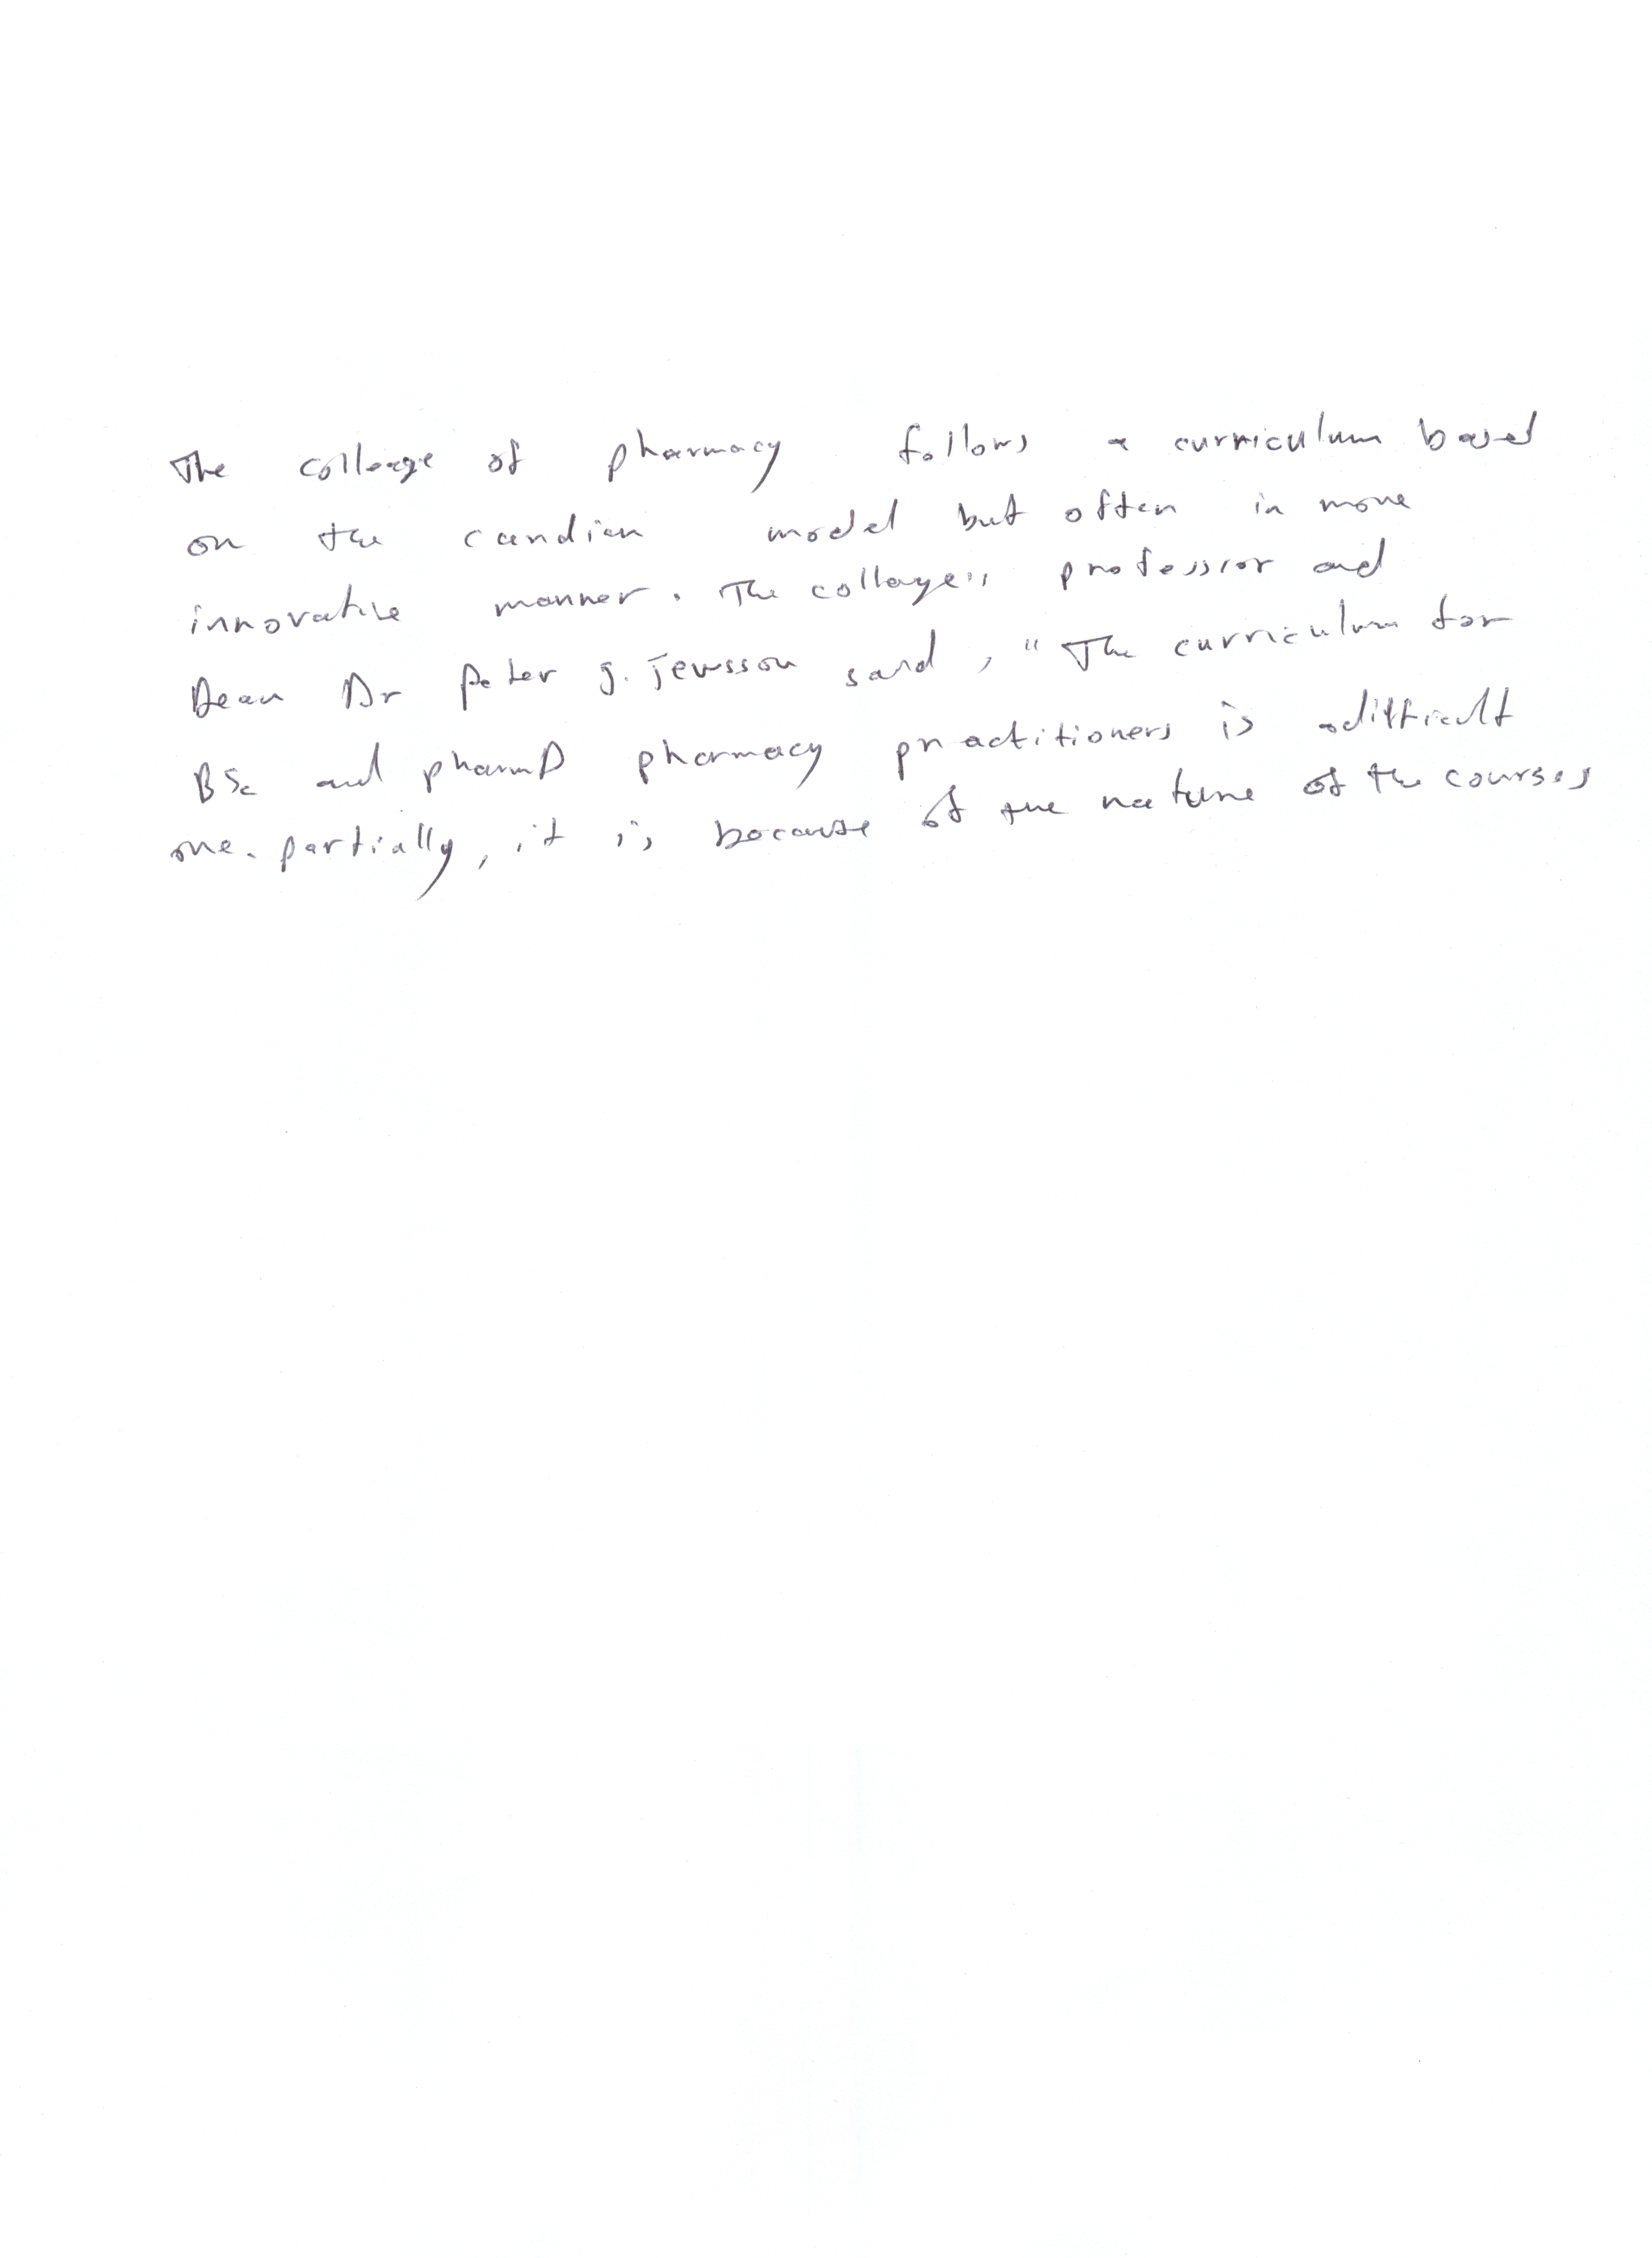 The colleage of pharmacy follows a curriculum based
on the candian model but often in more
innovative manner. The collage's professior and
Dean Dr Peter g. jewsson said, "The curriculum for
BSc and pharmD pharmacy practitioners is a difficult
one. partially, it is because of the nature of the courses